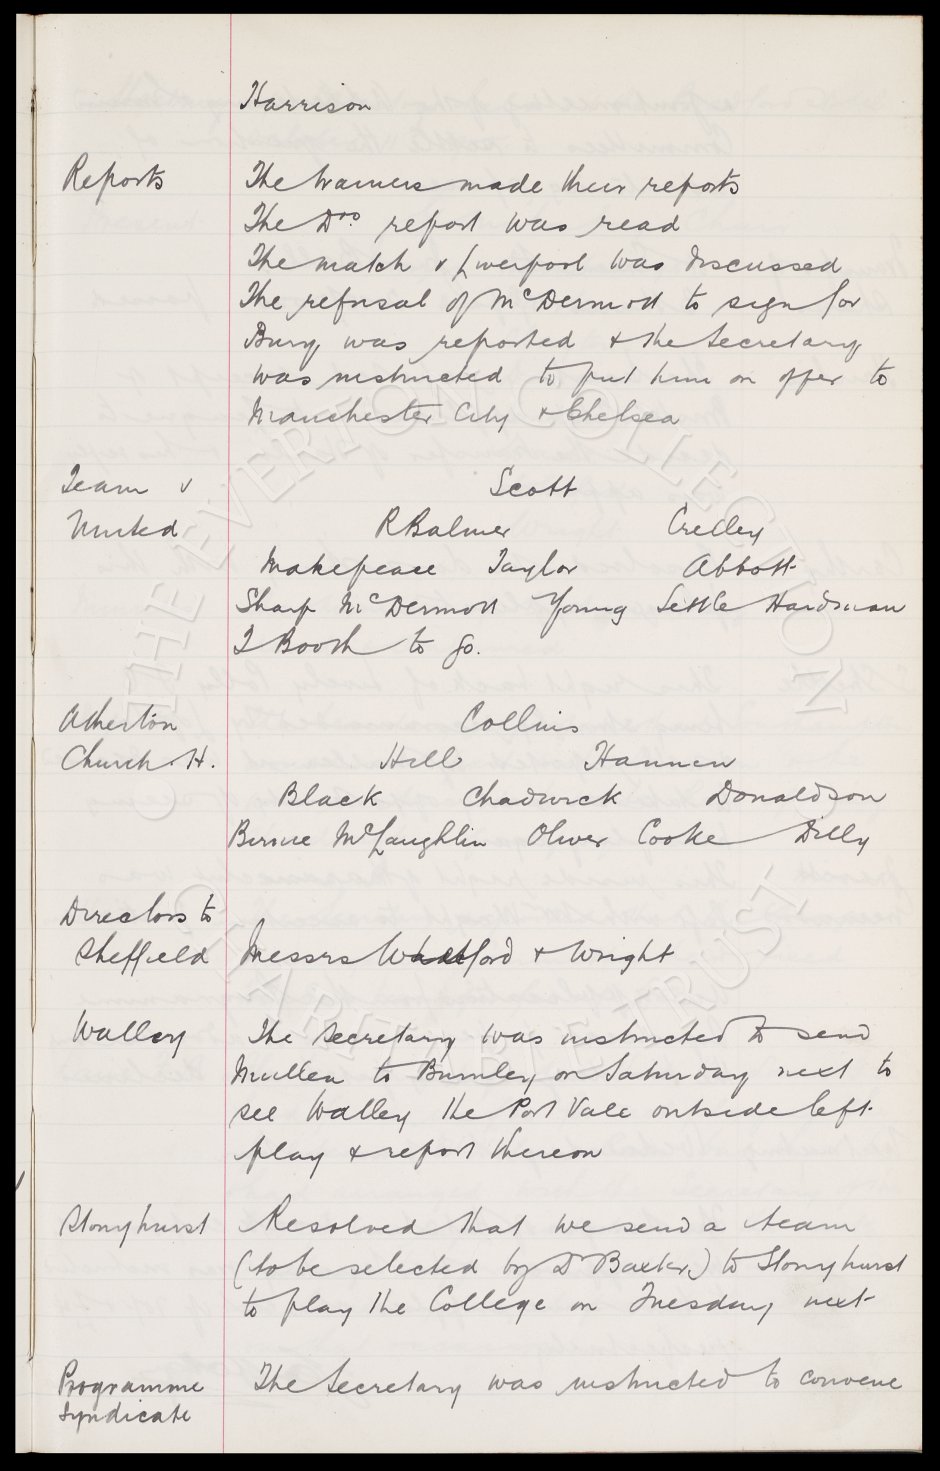 Harrison
Reports The trainers made their reports
The Drs. report was read
The match v Liverpool was discussed
The refusal of McDermott to sign for
Bury was reported & the Secretary
was instructed to put him on offer to
Manchester City & Chelsea
Team v Scott
United R Balmer Crelley
Makepeace Taylor Abbott
Sharp McDermott Young Settle Hardman
T Booth to go.
Atherton Collins
Church. H. Hill Hannen
Black Chadwick Donaldson
Birnie McLaughlin Oliver Cooke Dilly
Directors to
Sheffield Messrs & Wright
Walley The Secretary was instructed to send
Mullen to Burnley on Saturday next to
see Walley the Port Vale outside left
play & report thereon
Stonyhurst Resolved that we send a team
(to be selected by Dr Baxter) to Stonyhurst
to play the College on Tuesday next
Programme The Secretary was instructed to convene
Syndicate
THE EVERTON COLLECTION
CHARITABLE TRUST